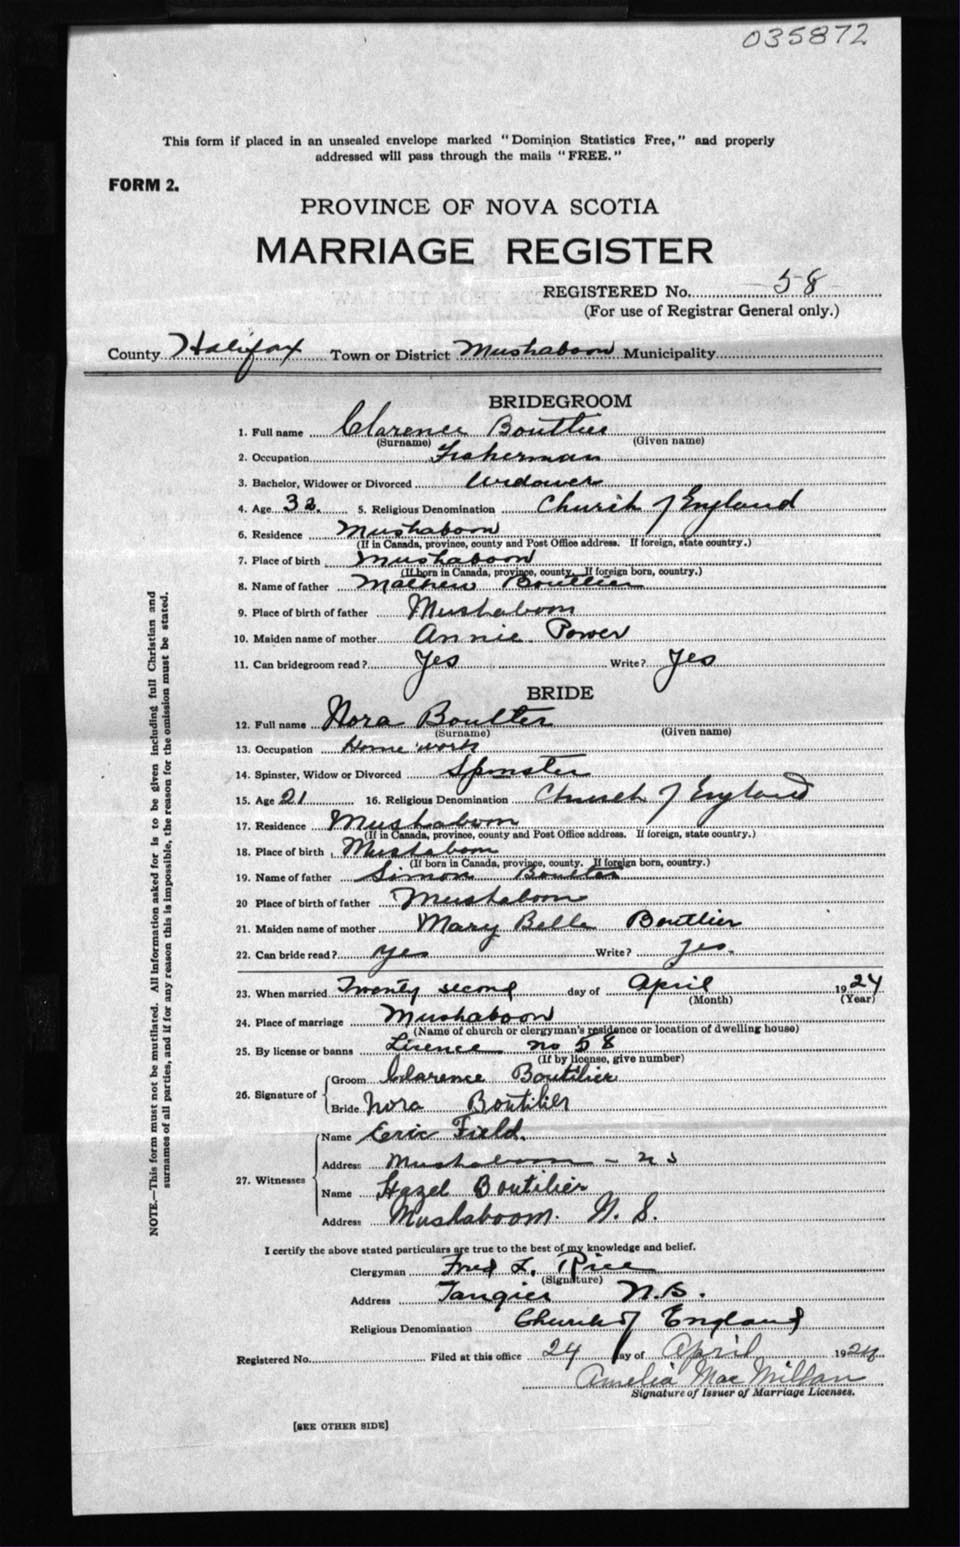 035872
This form if placed in an unsealed envelope marked "Dominion Statistics Free," and properly
addressed will pass through the mails "FREE."
FORM 2.
PROVINCE OF NOVA SCOTIA
MARRIAGE REGISTER
REGISTERED No. 58
(For use of Registrar General only.)
County Halifax Town or District Mushaboon Municipality
BRIDEGROOM
1. Full name Clarence Boutlier
(Surname) (Given name)
2. Occupation Fisherman
3. Bachelor, Widower or Divorced Widower
4. Age 32. 5. Religious Denomination Church of England
6. Residence Mushaboon
(If in Canada, province, county and Post Office address. If foreign, state country.)
7. Place of birth Mushaboon
(If born in Canada, province, county. If foreign born, country.)
8. Name of father Mathew Boutlier
9. Place of birth of father Mushaboom
10. Maiden name of mother Annie Power
11. Can bridegroom read? Yes Write? Yes
BRIDE
12. Full name Nora Boutler
(Surname) (Given name)
13. Occupation Home work
14. Spinster, Widow or Divorced Spinster
15. Age 21 16. Religious Denomination Church of England
17. Residence Mushaboom
(If in Canada, province, county and Post Office address. If foreign, state country.)
18. Place of birth Mushaboom
(If born in Canada, province, county. If foreign born, country.)
19. Name of father Simon Boutler
20 Place of birth of father Mushaboom
21. Maiden name of mother Mary Belle Boutlier
22. Can bride read? yes Write? yes.
23. When married Twenty second day of April 1924
(Month) (Year)
24. Place of marriage Mushaboon
(Name of church or clergyman's residence or location of dwelling house)
25. By license or banns Licence no 58
(If by license, give number)
26. Signature of Groom Clarence Boutilier
Bride Nora Boutilier
27. Witnesses Name Eric Field.
Address Mushaboom - N S
Name Hazel Boutilier
Address Mushaboom. N. S.
I certify the above stated particulars are true to the best of my knowledge and belief.
Clergyman Fred L. Rice
(Signature)
Address Tangier N.S.
Religious Denomination Church of England
Registered No. Filed at this office 24 day of April 1924
Amelia MacMillan
Signature of Issuer of Marriage Licenses.
[SEE OTHER SIDE]
NOTE.—This form must not be mutilated. All information asked for is to be given including full Christian and
surnames of all parties, and if for any reason this is impossible, the reason for the omission must be stated.